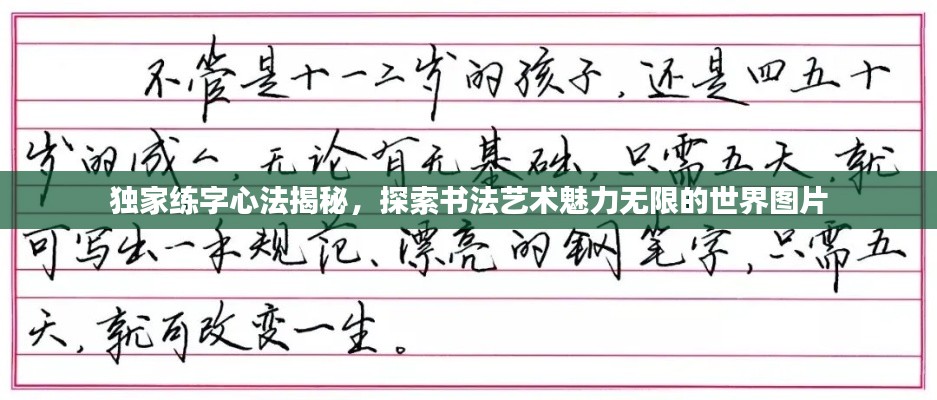 不管是十一二岁的孩子，还是四五十
岁的成人，无论有无基础，只需五天，就
独家练字心法揭秘，探索书法艺术魅力无限的世界图片
可写出一手规范、漂亮的钢笔字，只需五
天，就可改变一生。